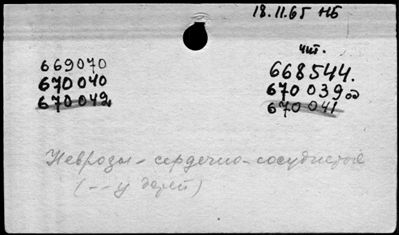 18.11.65 НБ
чит.
669070
670040
670042
668544.
670039
670041
Неврозы - сердечно-сосудистые
(-- у детей)